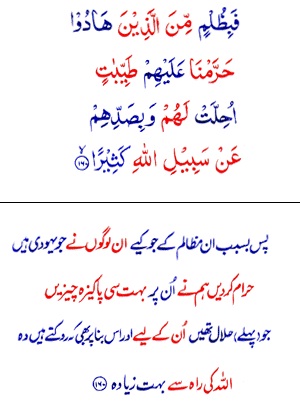 فَبِظُلْمٍ مِّنَ الَّذِيْنَ هَادُوْا
حَرَّمْنَا عَلَيْهِمْ طَيِّبٰتٍ
اُحِلَّتْ لَهُمْ وَبِصَدِّهِمْ
عَنْ سَبِيْلِ اللّٰهِ كَثِيْرًا ۙ﴿۱۶۰﴾
پس بسبب ان مظالم کے جو کیے ان لوگوں نے جو یہودی ہیں
حرام کردیں ہم نے اُن پر بہت سی پاکیزہ چیزیں
جو (پہلے) حلال تھیں اُن کے لیے اور اس بنا پر بھی کہ روکتے ہیں وہ
اللہ کی راہ سے بہت زیادہ ﴿۱۶۰﴾